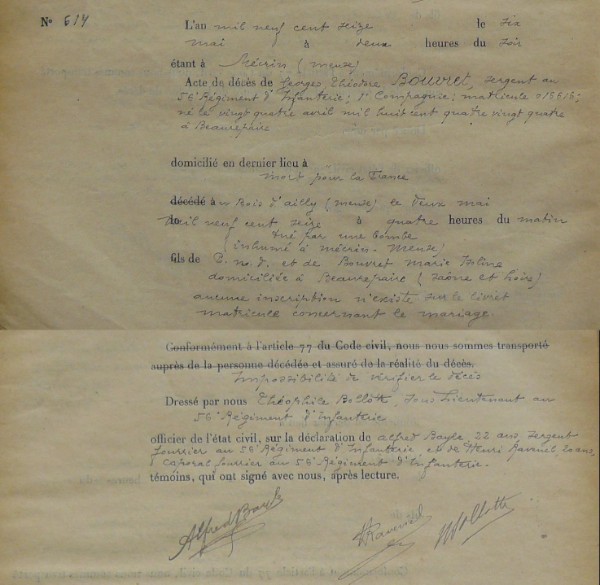 N° 614
L'an mil neuf cent seize le six
mai à deux heures du soir
étant à Mécrin (meuse)
Acte de décès de Georges Théodore Bouvret, sergent au
56e Régiment d'Infanterie; 1e Compagnie; matricule
né le vingt quatre avril mil huit cent quatre vingt quatre
à Beaurepaire
domicilié en dernier lieu à
mort pour la France
décédé à au Bois d'ailly (meuse) le deux mai
le mil neuf cent seize à quatre heures du matin
tué par une bombe
(inhumé à mécrin. Meuse)
fils de P. n. d. et de Bouvret Marie
domiciliée à Beaurepaire (Saône et Loire)
aucune inscription n'existe sur le livret
matricule concernant le mariage.
Conformément à l'article 77 du Code civil, nous nous sommes transporté
auprès de la personne décédée et assuré de la réalité du décès.
Impossibilité de vérifier le décès
Dressé par nous Théophile Bollotte, sous lieutenant au
56e Régiment d'Infanterie
officier de l'état civil, sur la déclaration de Alfred Bayle, 22 ans, sergent
fourrier au 56e Régiment d'Infanterie et de Henri
caporal fourrier au 56e Régiment d'Infanterie.
témoins, qui ont signé avec nous, après lecture.
Alfred Bayle